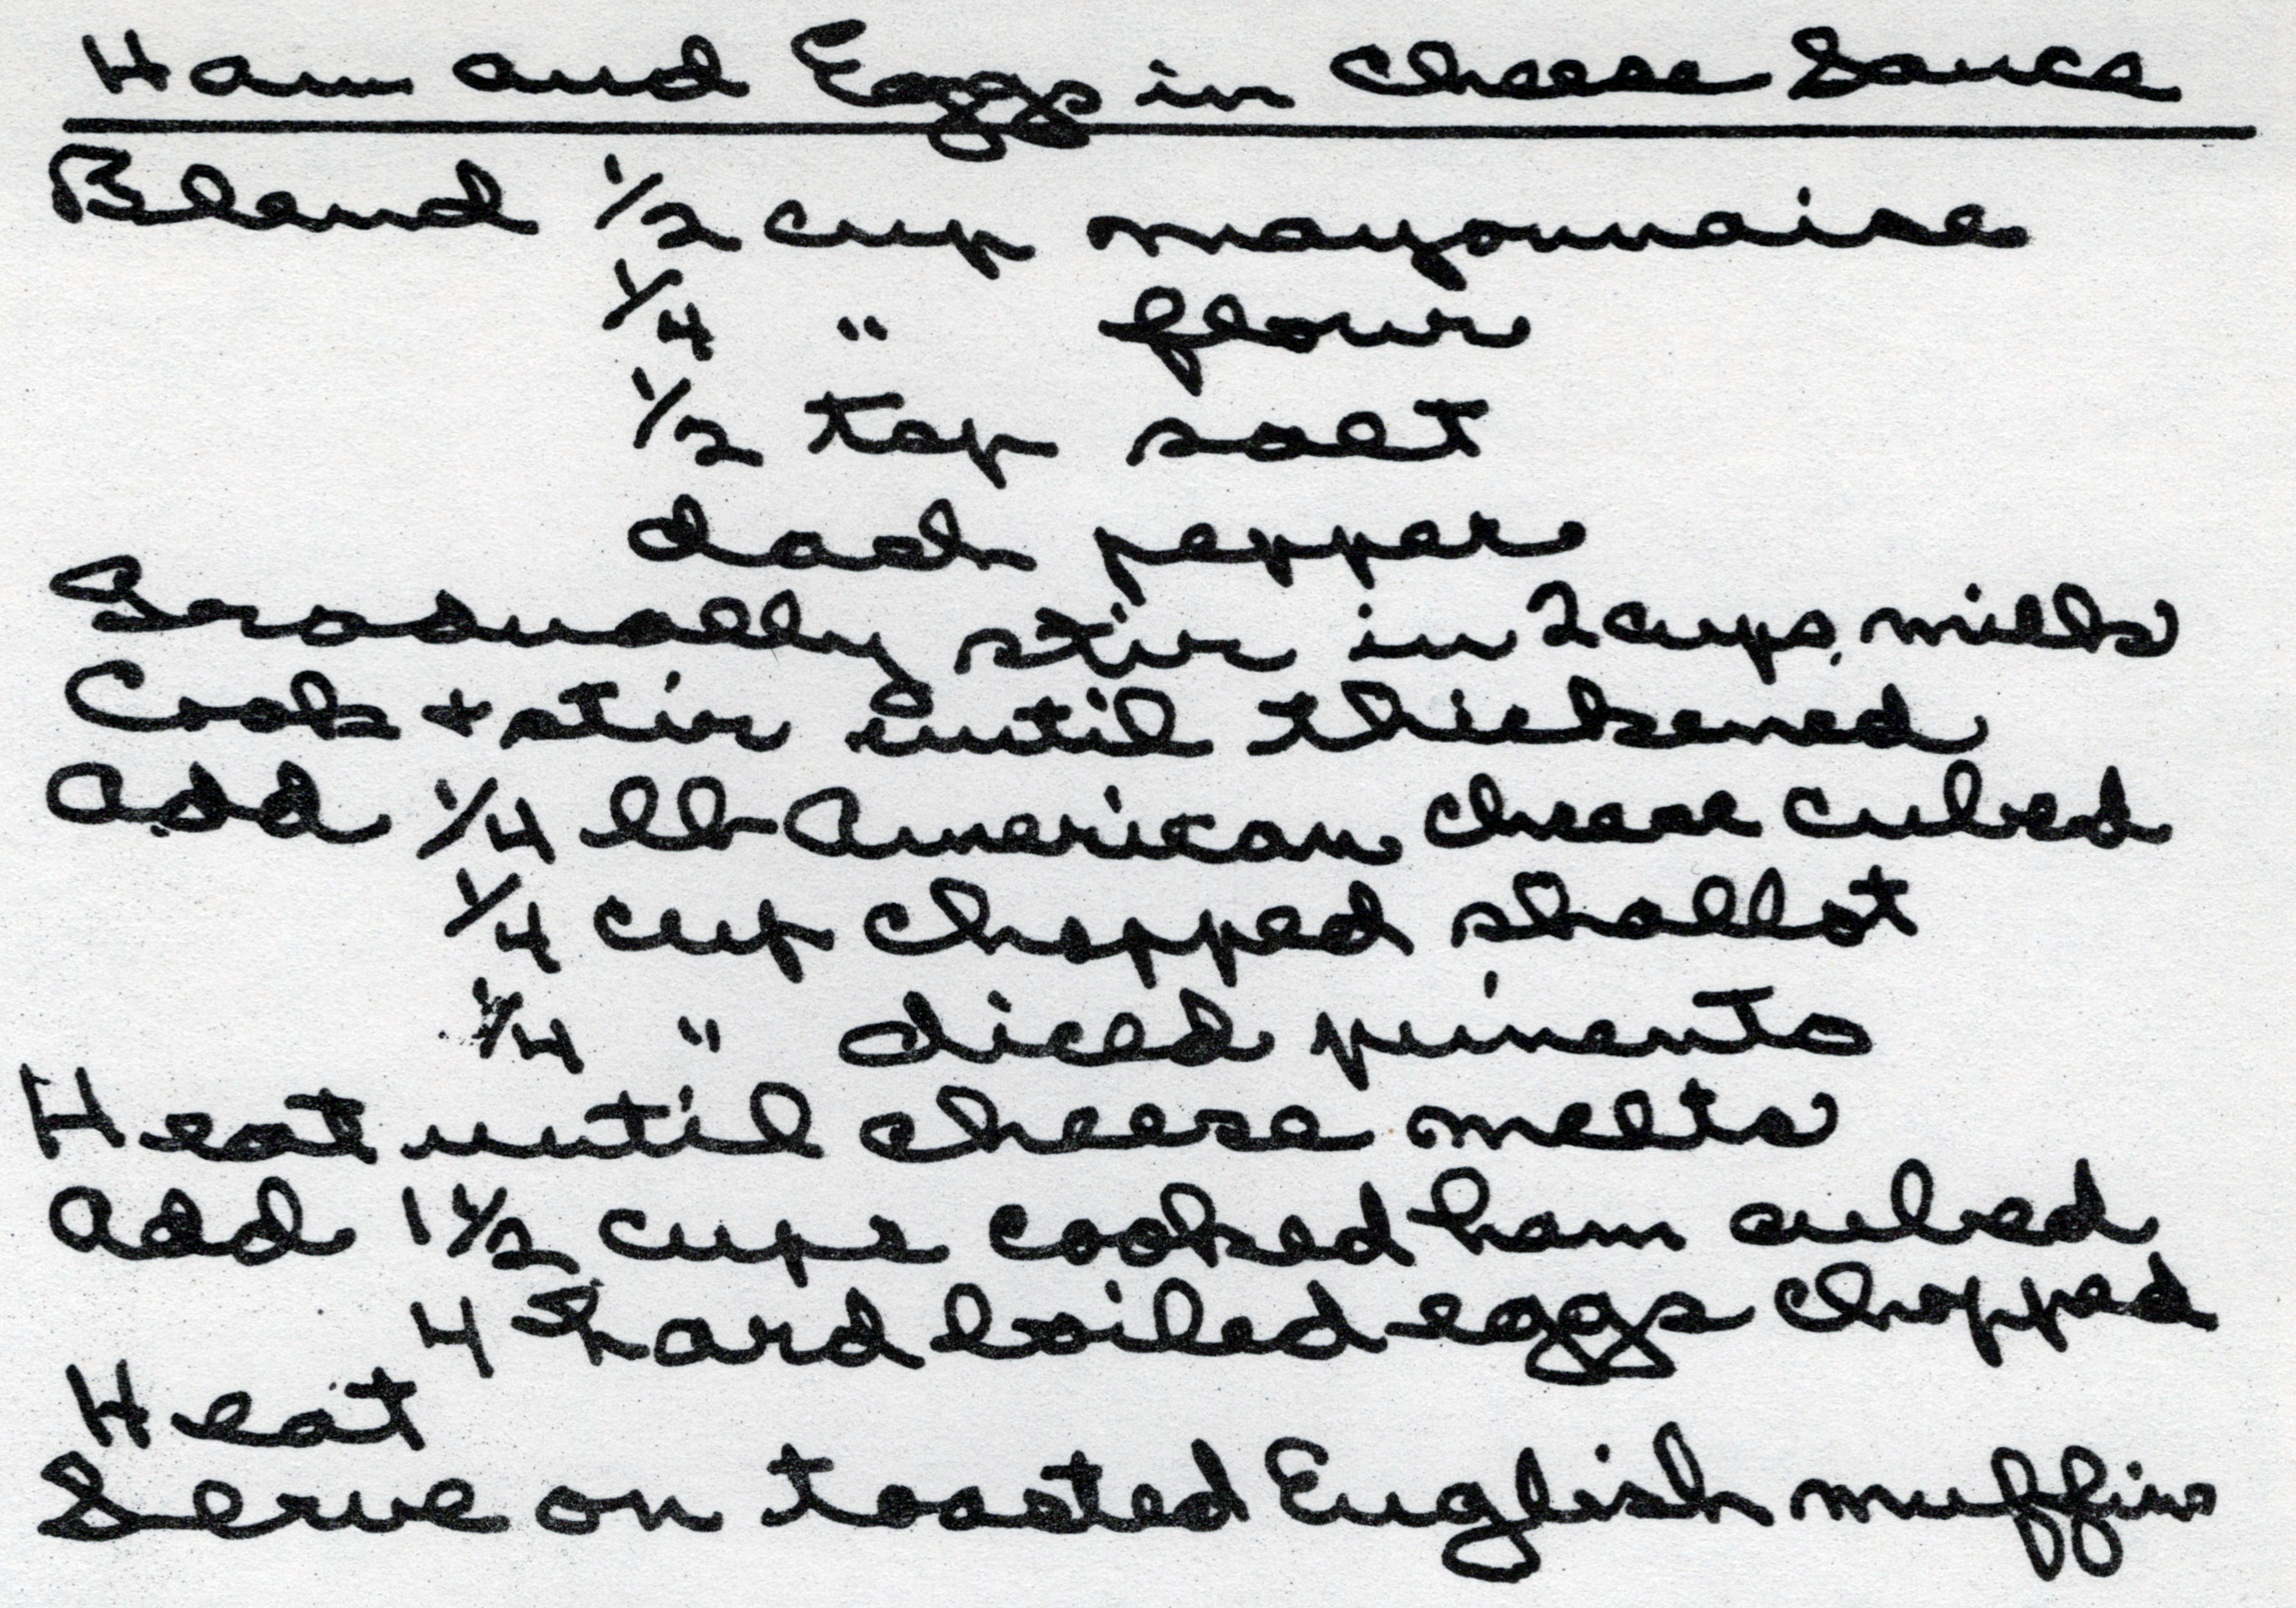 Ham and Eggs in Cheese Sauce
Blend 1/2 cup mayonnaise
1/4 " flour
1/2 tsp salt
dash pepper
Gradually stir in 2 cups milk
Cook + stir until thickened
Add 1/4 lb American cheese cubed
1/4 cup chopped shallot
1/4 " diced pimento
Heat until cheese melts
Add 1 1/2 cups cooked ham cubed
4 hard boiled eggs chopped
Heat
Serve on toasted English muffins